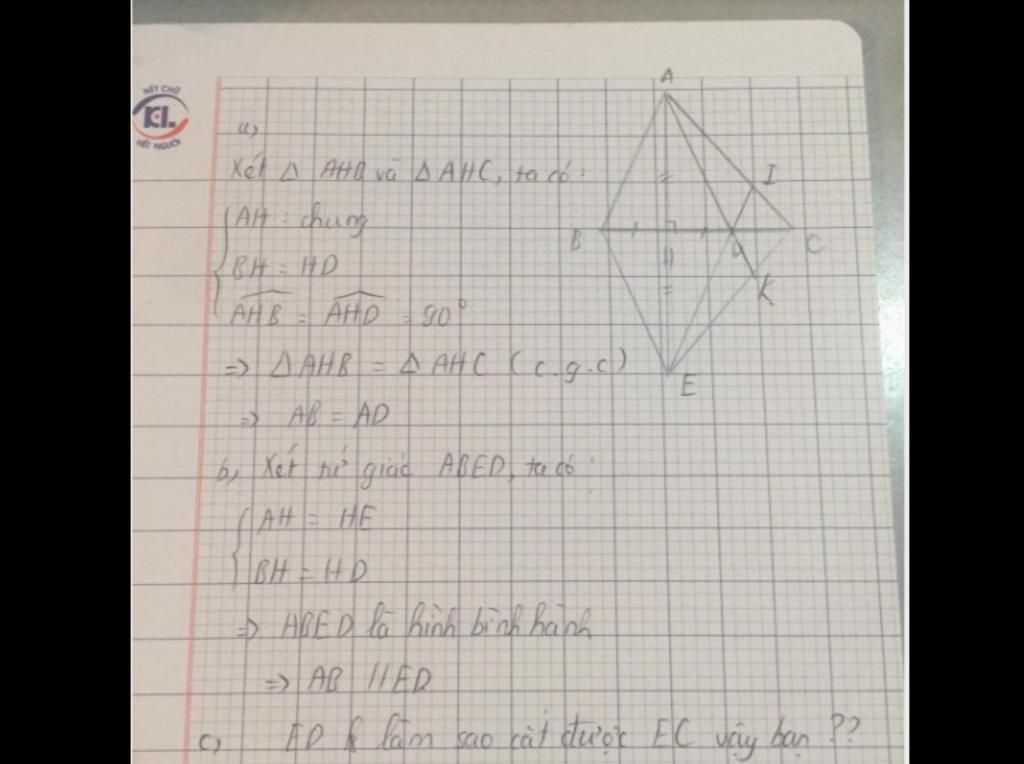 NÉT CHỮ
KL
NẾT NGƯỜI
a,
Xét △ AHB và △ AHC, ta có:
AH : chung
BH = HD
AHB = AHD = 90°
=> △AHB = △AHC (c.g.c)
=> AB = AD
b, Xét tứ giác ABED, ta có:
AH = HE
BH = HD
=> ABED là hình bình hành
=> AB // ED
c, ED làm sao cắt được EC vậy bạn ??
A
I
B
H
D
C
K
E